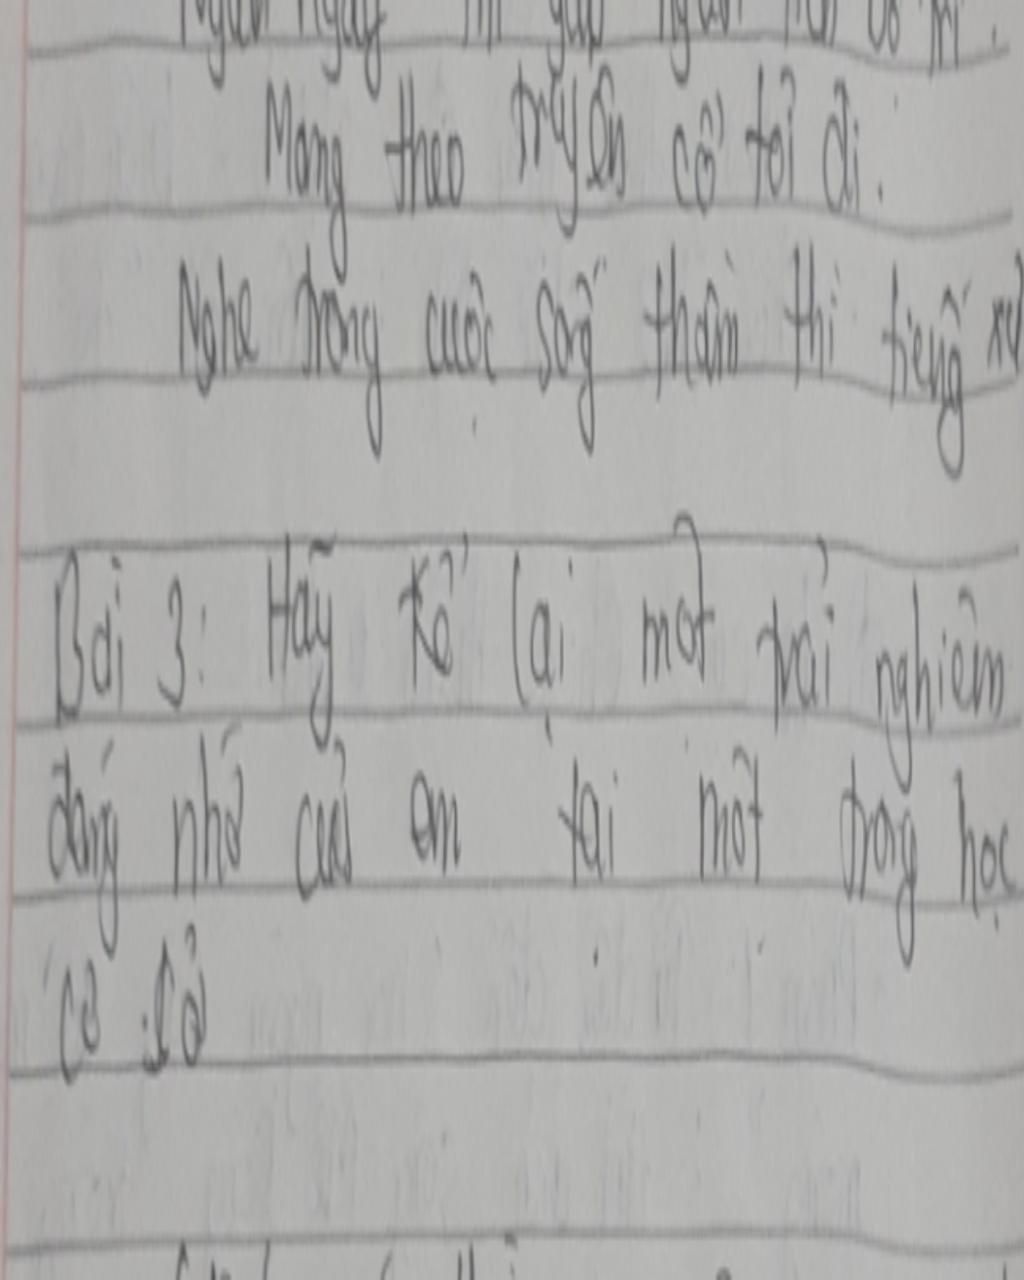 Mang theo truyện cổ tôi đi.
Nghe trong cuộc sống thầm thì tiếng xư
Bài 3: Hãy kể lại một trải nghiệm
đáng nhớ của em tại một trong học
cơ sở